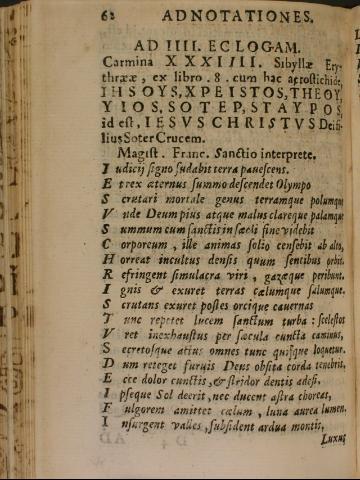 62 ADNOTATIONES.
AD IIII. ECLOGAM.
Carmina XXXIIII. Sibyllæ Ery-
thrææ, ex libro. 8. cum hac acrostichide,
IHSOYS, XPEISTOS, THEOY,
YIOS, SOTEP, STAYPOS,
id est, IESVS CHRISTVS Deifi-
lius Soter Crucem.
Magist. Franc. Sanctio interprete.
Iudicij signo sudabit terra pauescens.
Et rex æternus summo descendet Olympo
Scrutari mortale genus terramque polumque
Vnde Deum pius atque malus clareque palamque
Summum cum sanctis in sæcli fine videbit
Corporeum, ille animas solio censebit ab alto,
Horreat incultus densis quum sentibus orbis.
Refringent simulacra viri, gazæque peribunt.
Ignis & exuret terras cælumque salumque.
Scrutans exuret postes orcique cauernas
Tunc repetet lucem sanctum turba: scelestos
Vret inexhaustus per sæcula cuncta caminus,
Secretosque actus omnes tunc quisque loquetur.
Dum reteget furuis Deus obsita corda tenebris,
Ecce dolor cunctis, & stridor dentis adest,
Ipseque Sol deerit, nec ducent astra choreas,
Fulgorem amittet cælum, luna aurea lumen.
Insurgent valles, subsident ardua montis,
Luxus